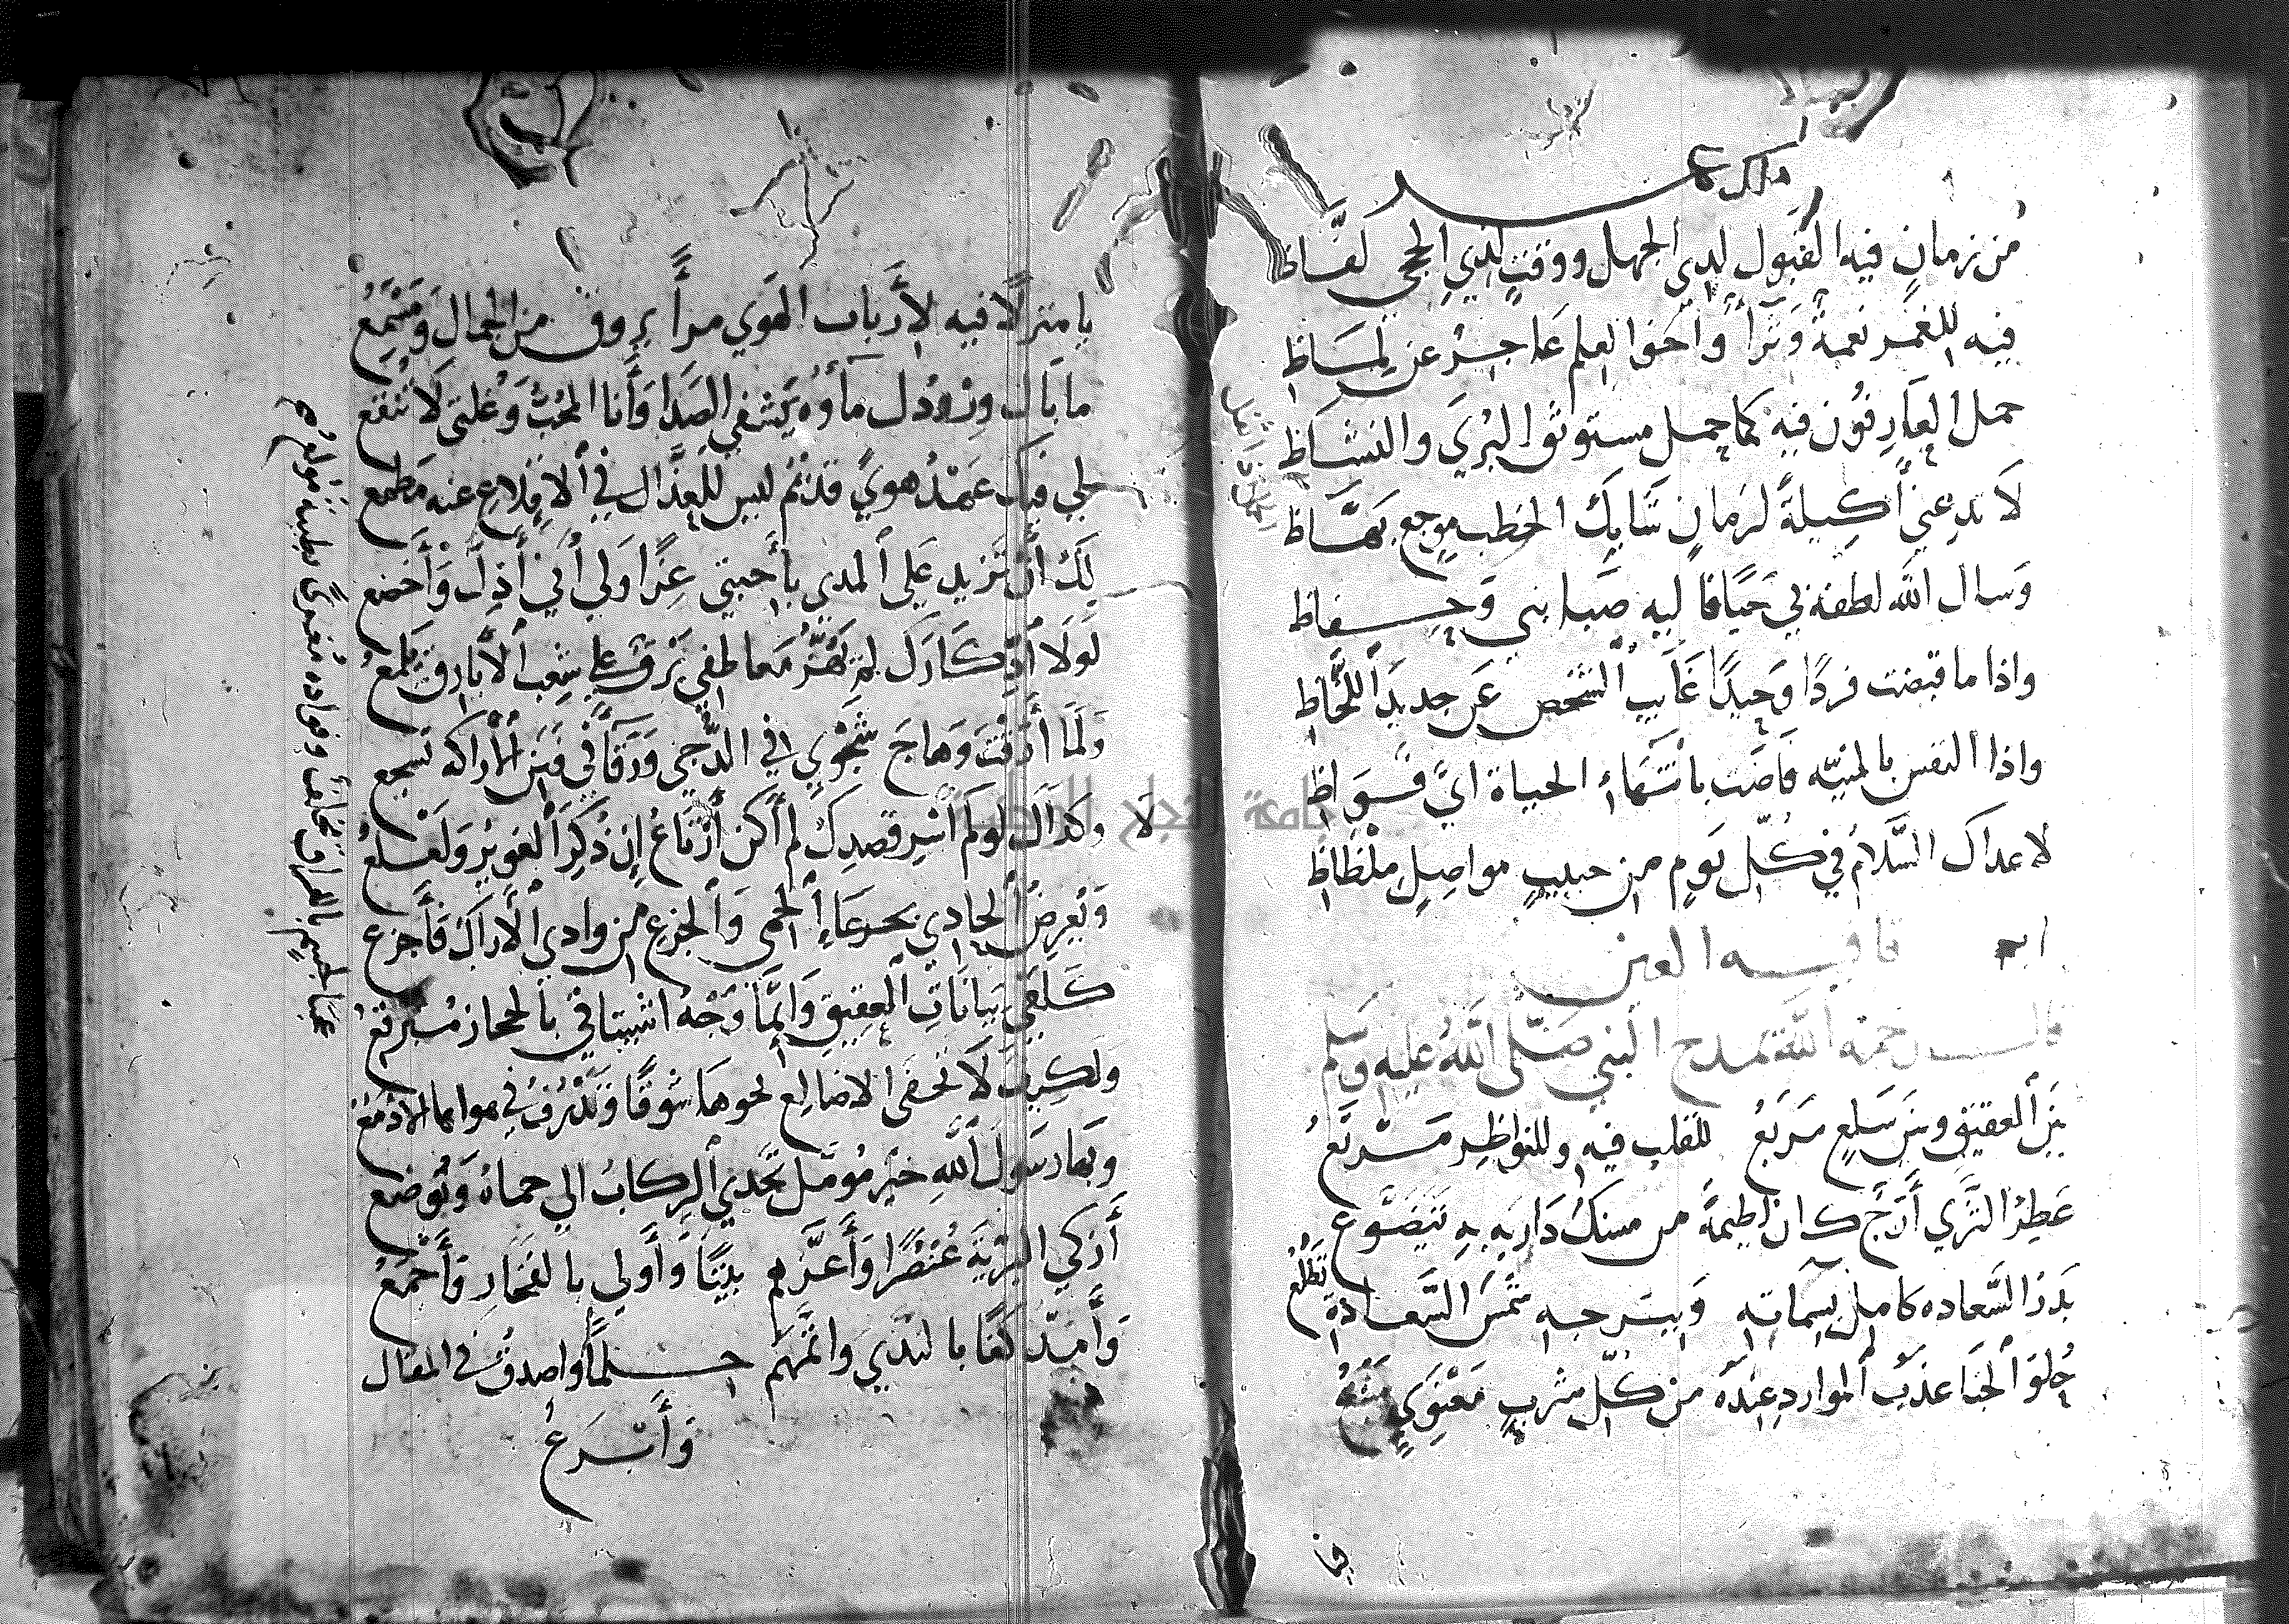 من زمانٍ فيه القبول لدى الجهل ووقتٍ لذي الحجى لفّاظ
فيه للغمر نعمةٌ وثرآءٌ وأخو العلم عاجزٌ عن لماظ
حمل العارفون فيه كما حمل مستوثق البرى والشظاظ
لا تدعني أكيلةً لزمانٍ شابك الخطب موجعٍ بهّاظ
وسال الله لطفه في حياة
واذا ما قبضت فردًا وحيدًا غايب الشخص عن جديد اللحاظ
واذا النفس بالمنيّه فاضت بانتهاء الحياة ايّ فواظ
لا عداك السّلام في كلّ يومٍ من حبيبٍ مواصلٍ ملظاظ
قافيه العين
قال رحمة الله يمدح النبي صلّى الله عليه وسلم
بين العقيق وبين سلعٍ مربعُ للقلب فيه وللنواظر مرتعُ
عطر الثرى أرجٌ كان لطيمةً من مسك دارين به تتضوّع
بدر السّعاده كامل بسمائه وببرجه شمس السّعادة تطلع
حلو الجنا عذب الموارد عنده من كلّ شربٍ معنويٍ مشرع
يا
يا منزلًا فيه لأرباب الهوى مرأً يروق من الجمال ومسمع
ما بال ورودك مآؤه يشفي الصّدا وأنا المحبّ وغلتي لا تنقع
لي فيك عهد هوىً قديم ليس للعذّال في الاقلاع عنه مطمع
لك أن تزيد على المدى يا حبيبتي عزًا ولي أني أذلّ وأخضع
لولا أدّكارك لم تهزّ معاطفي برق على شعب الأبارق يلمع
ولما أرقت وهاج شجوي في الدّجى ورقآ في فنن الأراكه تسجع
لا وكذاك لو لم أسر قصدك لم أكن أرتاع إن ذكر الغوير ولعلع
وبعرض الحادي بجرعاء الحمى والجزع من وادي الأراك فأجزع
كلفي ببانات العقيق وإنّما وجه اشتياقي بالحجاز مبرقع
ولكيف لا تحفى الاضالع نحوها شوقًا وتذرف في هواها الأدمع
وبها رسول الله خير مؤمّل تحدى الركاب الى حماه وتوضع
أزكى البريّة عنصرًا وأعزّهم بيتًا وأولى بالفخار وأجمع
وأمدّ كفًا بالندى وأتمّهم حلمًا واصدق في المقال
وأبرعُ
عجبًا لجسمٍ بالعراق مخلف وفؤاده مغرىً بطيبة مولع